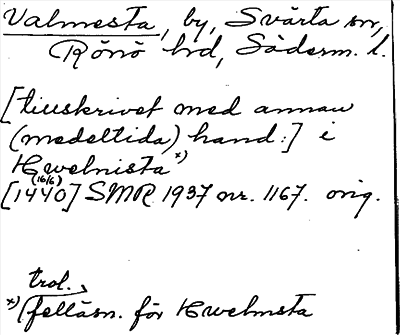 Valmesta, by, Svärta sn,
Rönö hd, Söderm. l.
[tillskrivet med annan
(medeltida) hand:] i
Hwelmista *)
(16/6)
[1440] SMR 1937 nr. 1167. orig.
trol.
*) felläsn. för Hwelmsta